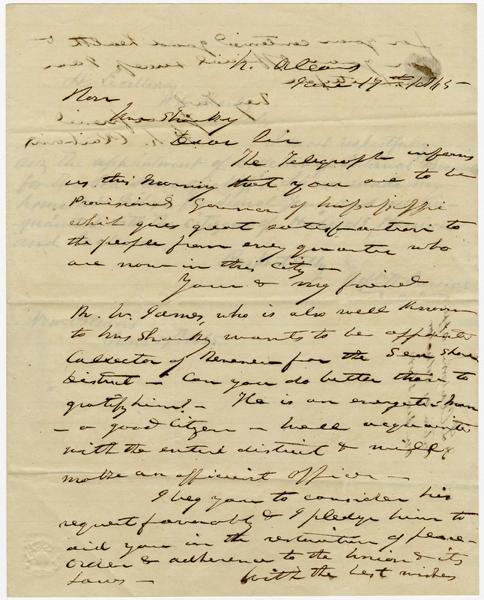 N. Orleans
June 17th 1865 -
Hon
Wm Sharkey
Dear Sir
The Telegraph informs
us this morning that you are to be
Provisional Governor of Mississippi
which gives great satisfaction to
the people from every quarter who
are now in this City -
Your & my friend
W. James, who is also well known
to Mrs Sharkey wants to be appointed
Collector of Revenue for the Sea Shore
District - Can you do better than to
gratify him? - He is an energetic man
- a good Citizen - well acquainted
with the entire district & will
make an efficient officer -
I beg you to consider his
request favorably & I pledge him to
aid you in the restoration of peace
order & adherence to the Union & its
Laws - With the best wishes